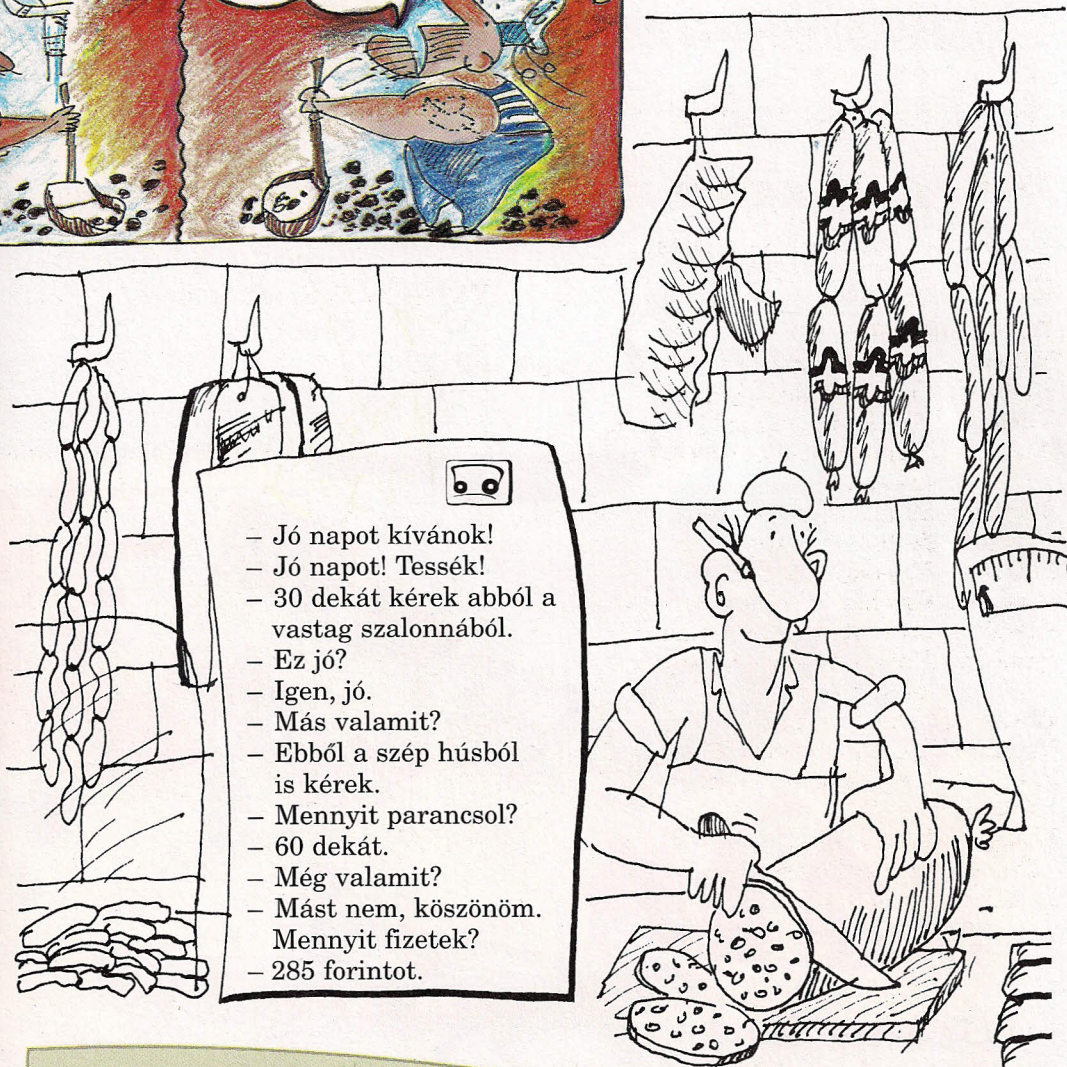 – Jó napot kívánok!
– Jó napot! Tessék!
– 30 dekát kérek abból a
vastag szalonnából.
– Ez jó?
– Igen, jó.
– Más valamit?
– Ebből a szép húsból
is kérek.
– Mennyit parancsol?
– 60 dekát.
– Még valamit?
– Mást nem, köszönöm.
Mennyit fizetek?
– 285 forintot.